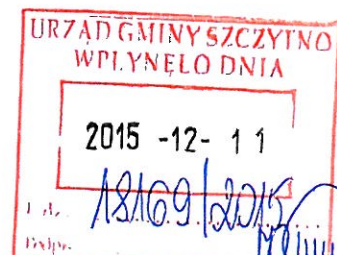 URZĄD GMINY SZCZYTNO
WPŁYNĘŁO DNIA
2015 -12- 11
L.dz. 18169/2015
Podpis